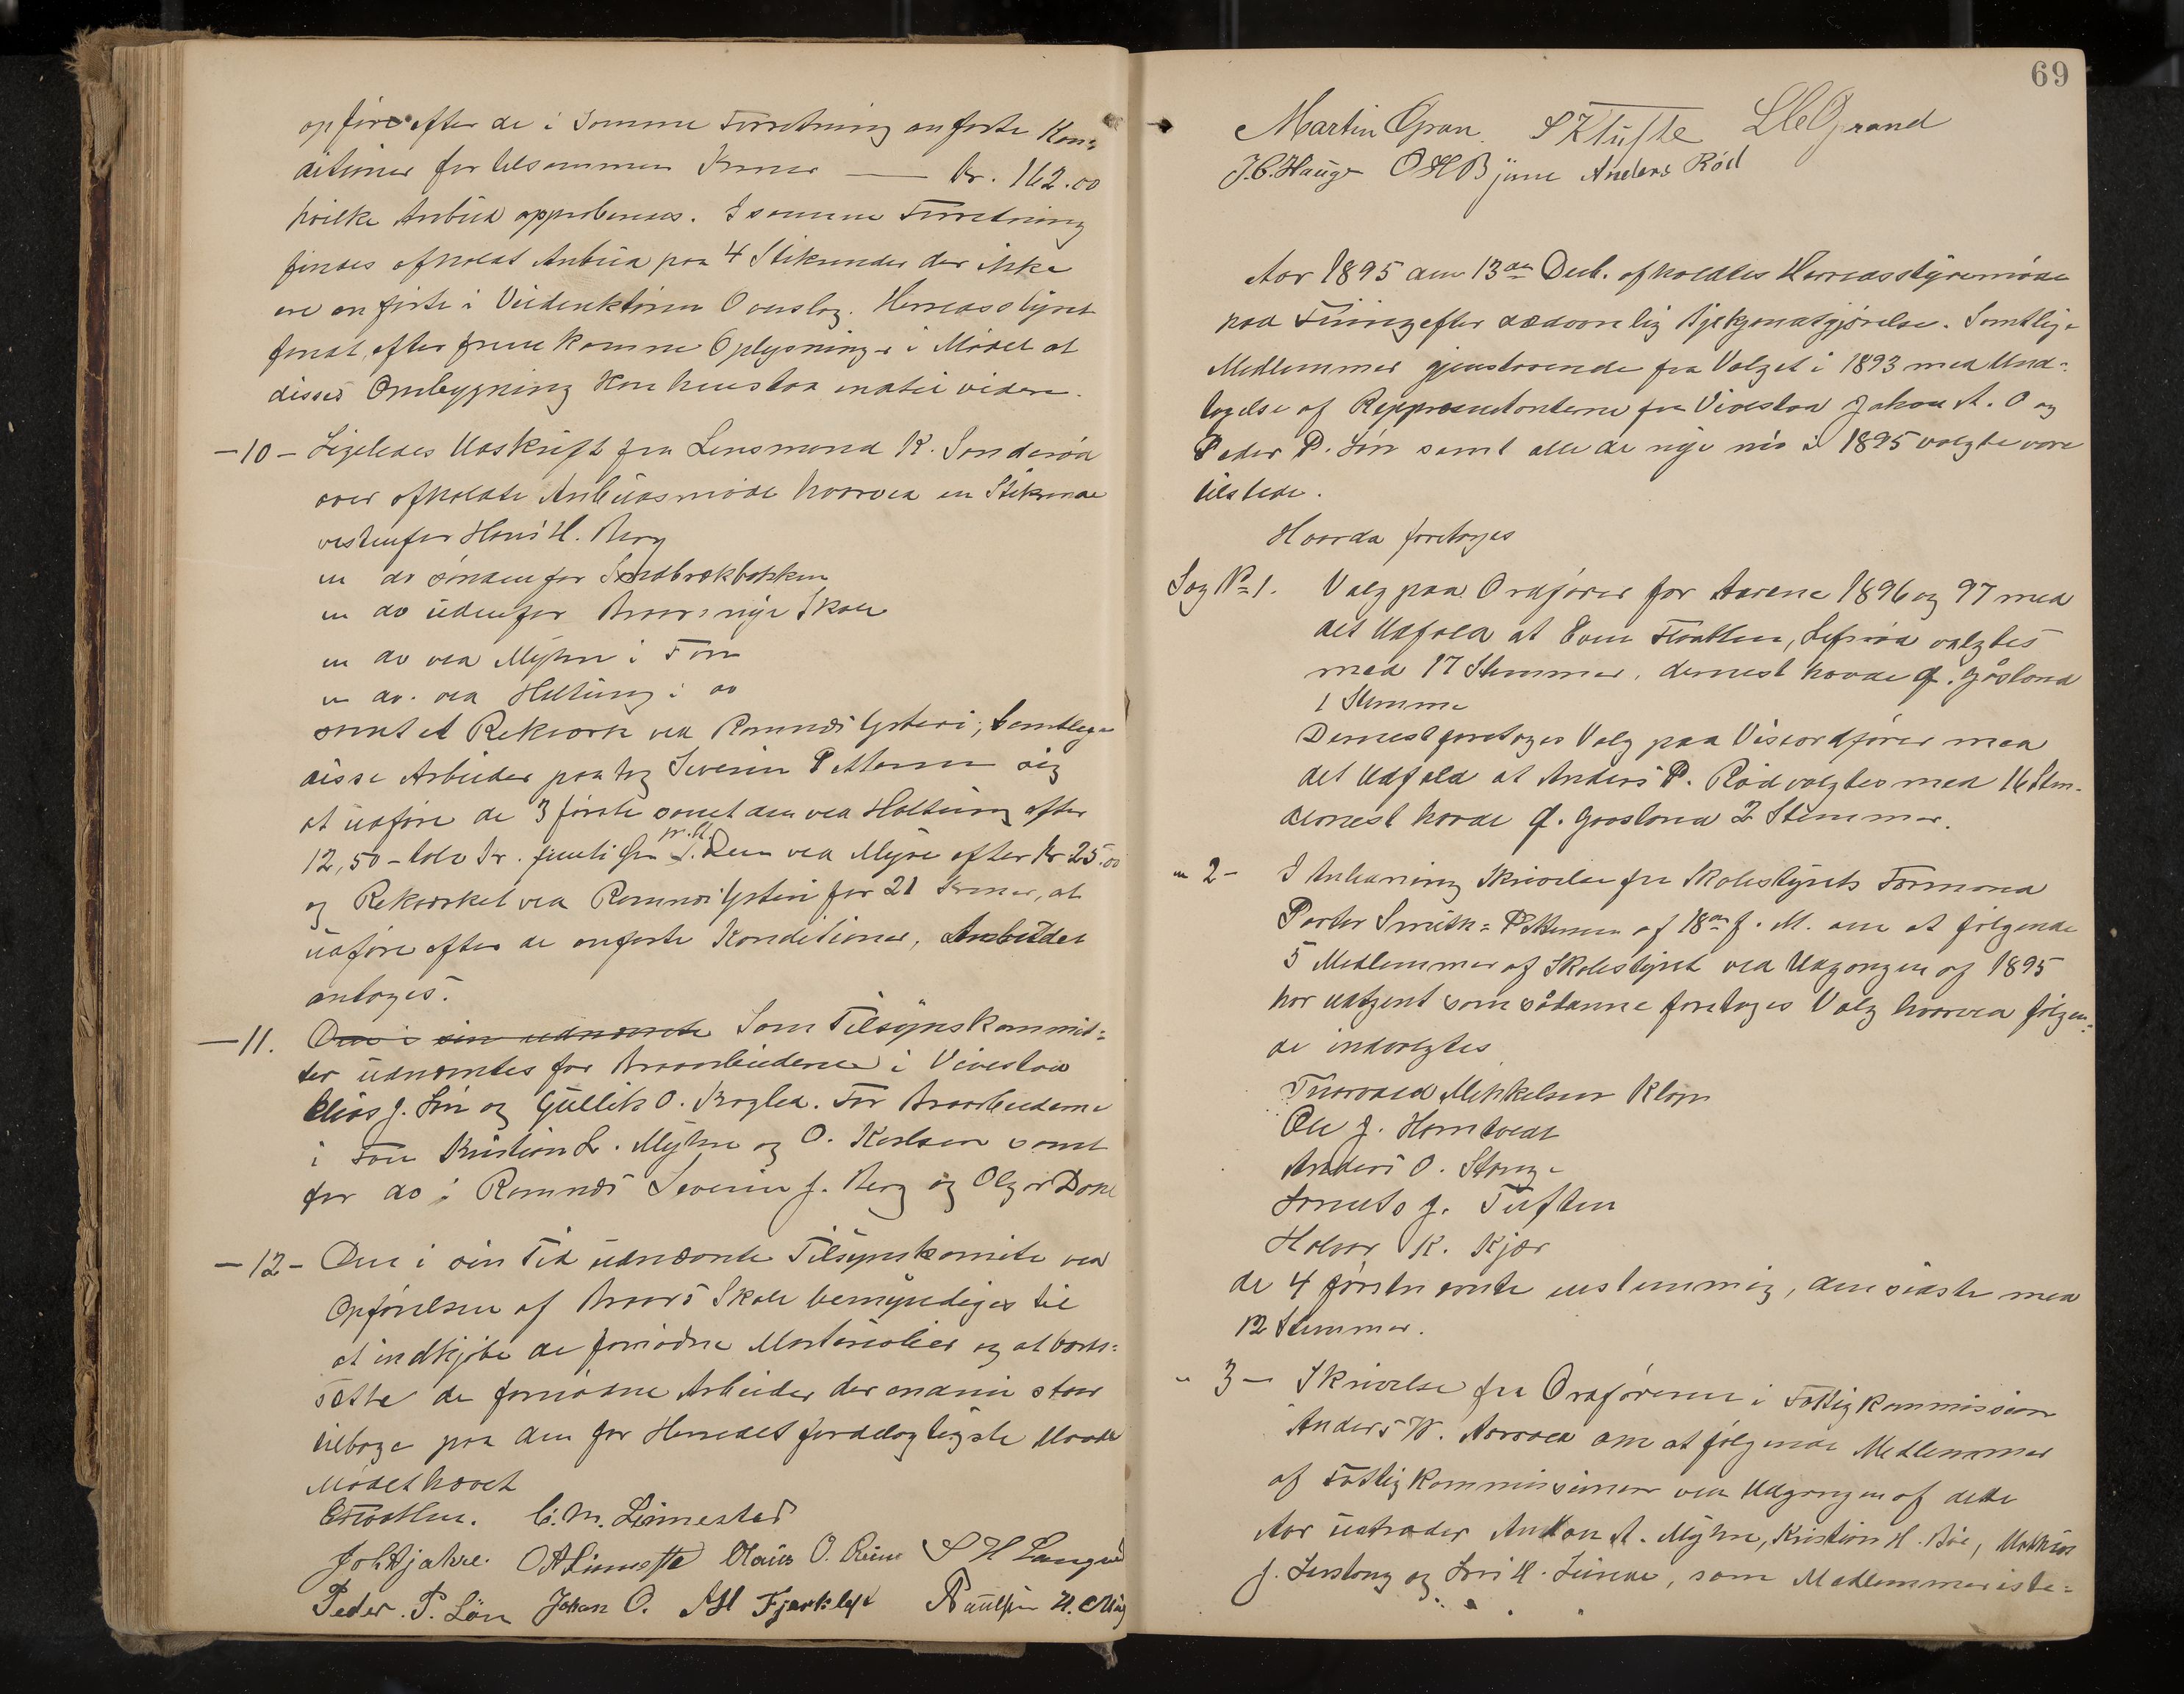 opføre efter de i samme Forretning anførte Kon=
ditioner for tilsammen Kroner — Kr. 162.00
hvilke Anbud approberes. I samme Forretning
findes afholdt Anbud paa 4 Stikrender der ikke
ere anførte i Veidirektørens Overslag. Herredsstyret
fandt, efter fremkomne Oplysninger i Mødet at
disses Ombygning kan henstaa indtil videre.
—10— Ligeledes Udskrift fra Lensmand K. Sønderød
over afholdte Anbudsmøde hvorved en Stikrende
vestenfor Hans H. Berg
en do søndenfor Sandbrækbakken
en do udenfor Aroes nye Skole
en do ved Myhre i Fon
en do. ved Holtung i do
samt et Rekværk ved Ramnæs Ysteri; Samtlige
disse Arbeider paatog Severin Pettersen sig
at udføre de 3 første samt den ved Holtung efter
12,50 – tolv Kr. femti Øre pr. St. Den ved Myre efter Kr 25.00
og Rekværket ved Ramnæs Ysteri for 21 Kroner, at
udføre efter de anførte Konditioner. Anbudet
antoges.
—11. Den i sin udnævnte Som Tilsynskommit=
ter udnævntes for Aroarbeiderne i Vivestad
Elias J. Løn og Gullik O. Kogled. For Aroarbeiderne
i Fon Kristian L. Myhre og O. Karlsen samt
for do i Ramnæs Severin J. Berg og Olger Dope
—12— Den i sin Tid udnævnte Tilsynskomite ved
Opførelsen af Aroers Skole bemyndiges til
at indkjøbe de fornødne Materialier og at bort=
sætte de fornødne Arbeider der endnu staar
tilbage paa den for Herredet fordelagtigste Maade
Mødet hævet
E Floatten. C. M. Linnestad
Joh Hjahre. O A Linnestad Olaus O. Reine S H Langved
Peder. P. Lön Johan O. A H Fjærkleft Paulsen H. C Müg
69
Martin Gran S K Tufte L Chr Grand
J. C. Hauge O H Bjüne Anders Rød
Aar 1895 den 13de Decb. afholdtes Herredsstyremøde
paa Fuing efter sædvanlig Bekjendtgjørelse. Samtlige
Medlemmer gjenstaaende fra Valget i 1893 med Und=
tagelse af Representanterne fra Vivestad Johan A. O og
Peder P. Løn samt alle de nye nu i 1895 valgte vare
tilstede.
Hvorda foretoges
Sag No 1. Valg paa Ordfører for Aarene 1896 og 97 med
det Udfald at Even Floatten, Lefsrød valgtes
med 17 Stemmer, dernest havde J. Gåsland
1 Stemme
Dernest foretoges Valg paa Viseordfører med
det Udfald at Anders P. Rød valgtes med 16 Stem.
dernest havde J. Gaasland 2 Stemmer.
" 2— I Anledning Skrivelse fra Skolestyrets Formand
Pastor Smith=Petersen af 18de f. M. om at følgende
5 Medlemmer af Skolestyret ved Udgangen af 1895
har udtjent som sådanne foretoges Valg hvorved følgen=
de indvalgtes
Thorvald Mikkelsen Klopp
Ole J. Horntvedt
Anders O. Stange
Lorents J. Tuften
Halvor K. Kjær
de 4 førstnævnte enstemmig, den sidste med
12 Stemmer.
" 3— Skrivelse fra Ordføreren i Fattigkommission
Anders W. Aarsrød om at følgende Medlemmer
af Fattigkommissionen ved Udgangen af dette
Aar udtræder Anton A. Myhre, Kristian H. Bøe, Mathias
J. Linstang og Lars H. Linde, som Medlemmer iste=